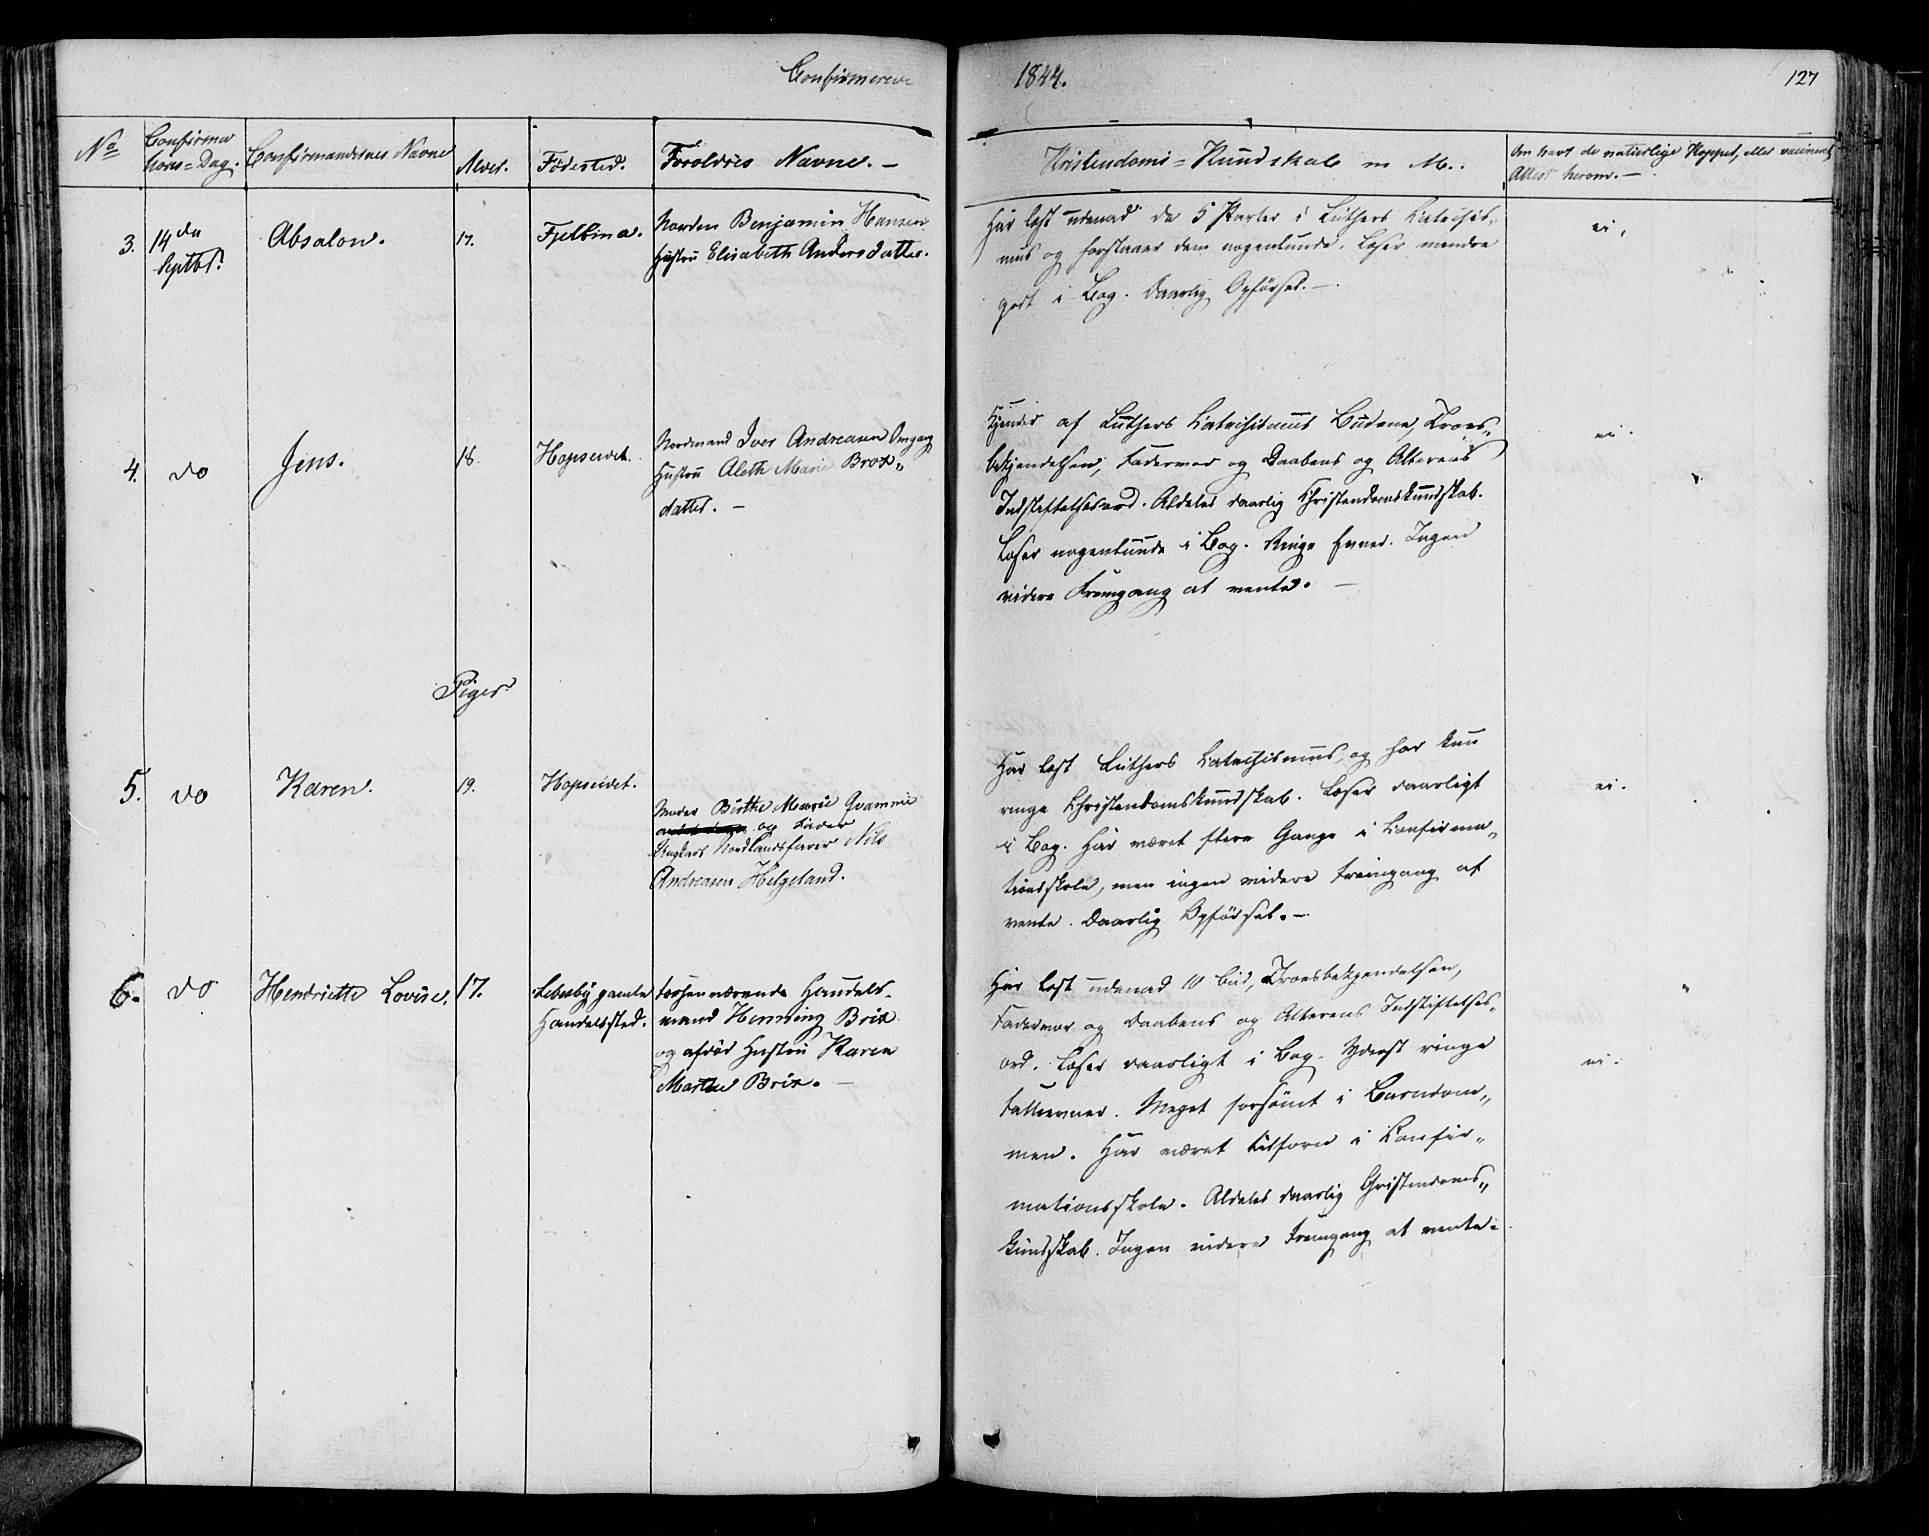 Confirmerede
1844.
127
No
Confirma
tions=Dag.
Confirmandernes Navne
Alder.
Födested.
Foroldres Navne. –
Kristendoms=Kundskab m M.:
Om havt de naturlige Kopper, eller vaccineret,
Attest herom. –
3.
14de
Septbr.
Absalon.
17.
Fjelbma.
Norden Benjamin Hansen
Hustru Elisabeth Andersdatter.
Har læst udenad de 5 Parter i Luthers Catechis-
mus og forstaaer dem nogenlunde. Læser mindre
godt i Bog. Daarlig Opførsel. –
ei.
4.
do
Jens.
18.
Hopseidet.
Nordmand Iver Andreasen Omgang
Hustru Aleth Marie Brox„
datter. –
Kjender af Luthers Catechismus Budene, Troes„
bekjendelsen, Fadervor og Daabens og Alterens
Indstiftelsesord. Aldeles daarlig Christendomskundskab.
Læser nogenlunde i Bog. Ringe Evner. Ingen
videre Fremgang at vente. –
ei.
Piger
5.
do
Karen.
19.
Hopseidet.
Moder Birthe Marie Qvamme
og Fader
Ungkarl Nordlandsfarer Nils
Andreasen Helgeland.
Har læst Luthers Catechismus, og har kun
ringe Christendomskundskab. Læser daarligt
i Bog. Har været flere Gange i Confirma„
tionsskole, men ingen videre Fremgang at
vente. Daarlig Opførsel. –
ei.
6.
do
Henriette Lovise.
17.
Lebesby gamle
Handelssted.
forhenværende Handels-
mand Henning Brix
og afdöd Hustru Karen
Marthe Brix. –
Har læst udenad 10 Bud, Troesbekjendelsen,
Fadervor og Daabens og Alterens Indstiftelses„
ord. Læser daarligt i Bog. Yderst ringe
Fatteevner. Meget forsömt i Barndom„
men. Har været tilforn i Confir„
mationsskole. Aldeles daarlig Christendoms„
kundskab. Ingen videre Fremgang at vente.
ei.